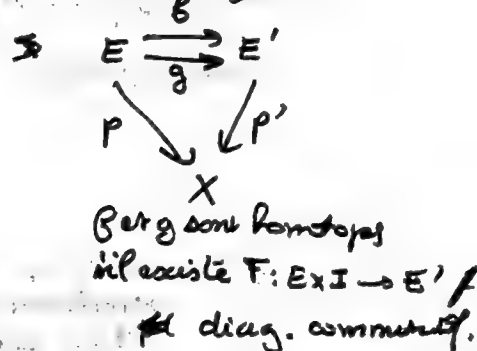 f
E E'
g
p p'
X
f et g sont homotopes
s'il existe F: E x I → E' /
diag. commutatif.